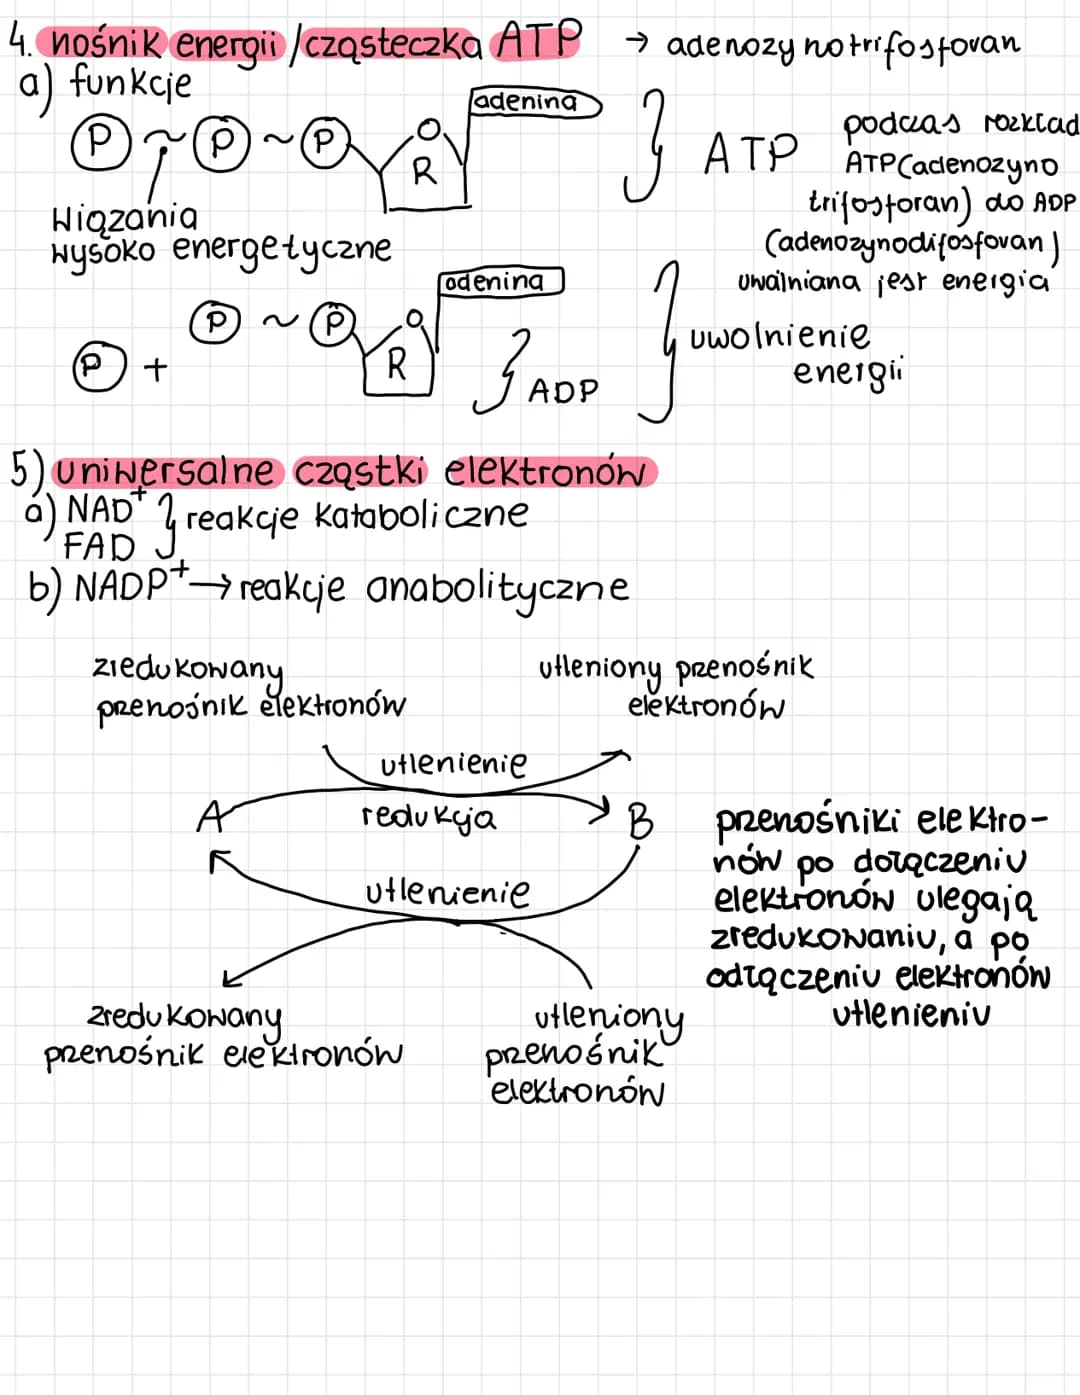 4. nośnik energii /cząsteczka ATP → adenozynotrifosfovan
a) funkcje
adenina
P ~ P ~ P O R
ATP
podczas rozkład
ATP(adenozyno
trifosforan) do ADP
(adenozynodifosfovan)
uwalniana jest energia
Wiązania
wysoko energetyczne
adenina
P + P ~ P O R
ADP
uwolnienie
energii
5) uniwersalne cząstki elektronów
a) NAD+ } reakcje kataboliczne
FAD
b) NADP+ → reakcje anabolityczne
zredukowany
przenośnik elektronów
utleniony przenośnik
elektronów
utlenienie
A redukcja B
utlenienie
przenośniki elektro-
nów po dołączeniu
elektronów ulegają
zredukowaniu, a po
odłączeniu elektronów
utlenieniu
zredukowany
przenośnik elektronów
utleniony
przenośnik
elektronów